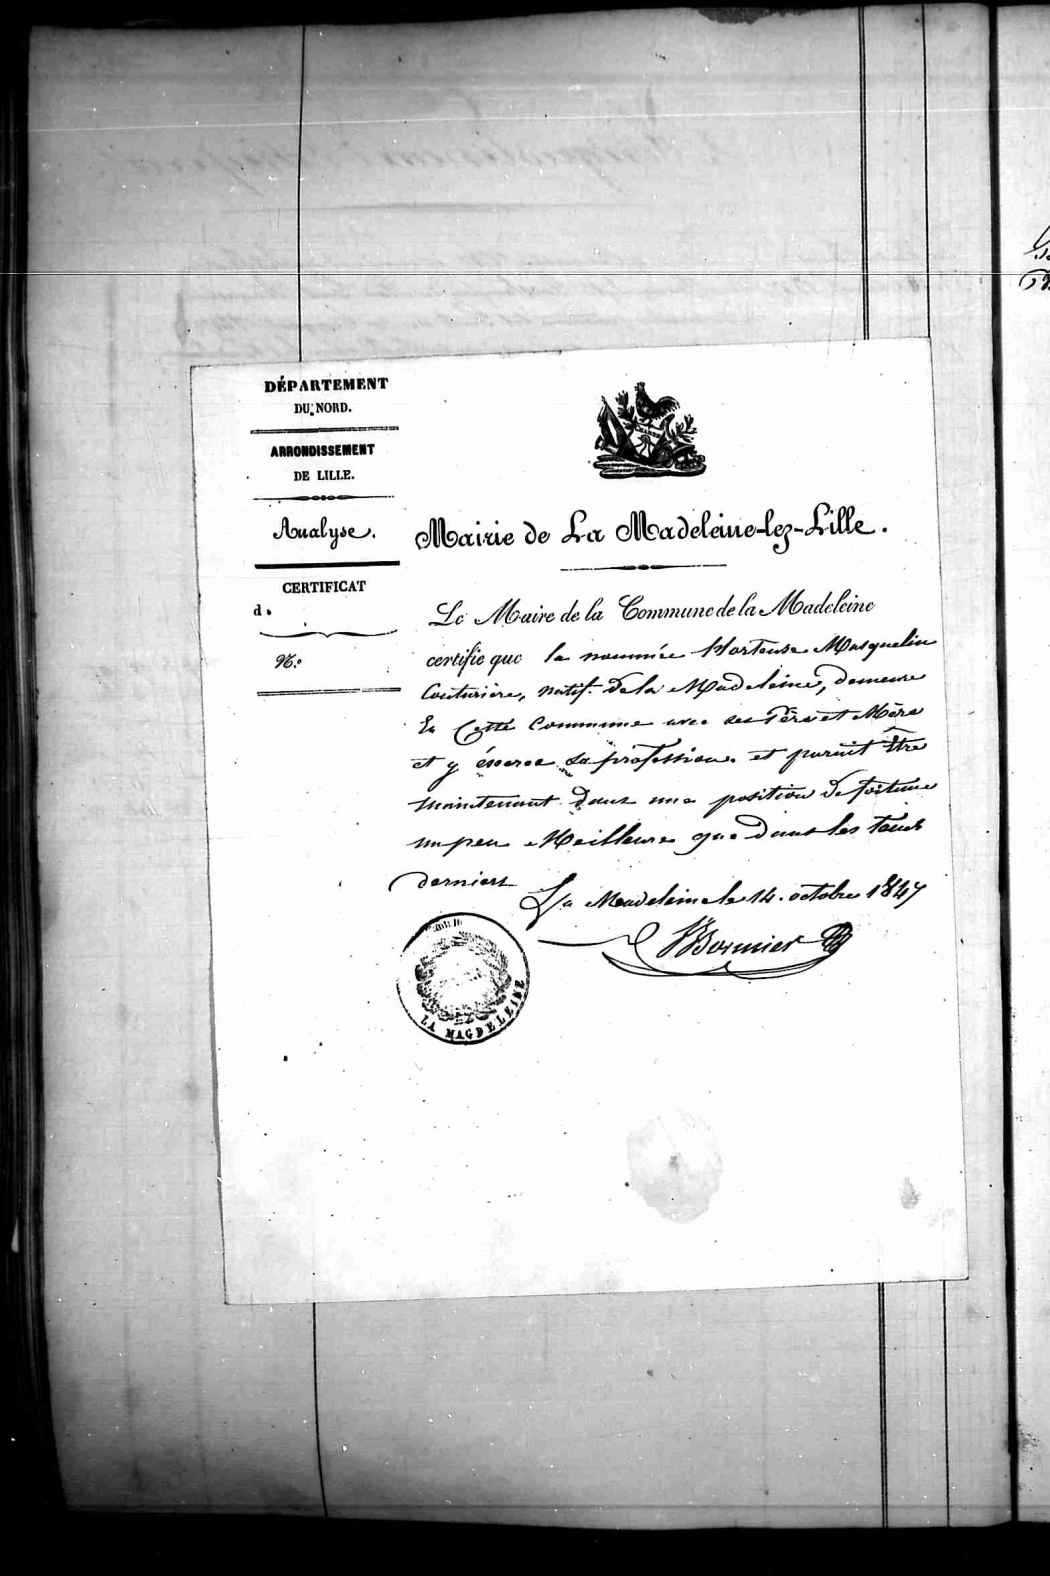 DÉPARTEMENT
DU NORD.
ARRONDISSEMENT
DE LILLE.
Analyse.
CERTIFICAT
d.
N.o
Mairie de La Madeleine-lez-Lille.
Le Maire de la Commune de la Madeleine
certifie que la nommée Hortense Masquelin
Couturière, natif de la Madeleine, demeure
En Cette Commune avec ses Père et Mère
et y énerce sa profession. et parait être
maintenant dans une position de fortune
un peu Meilleure que dans les tems
derniers
La Madeleine le 14 octobre 1847
Bonnier
LA MAGDELEINE